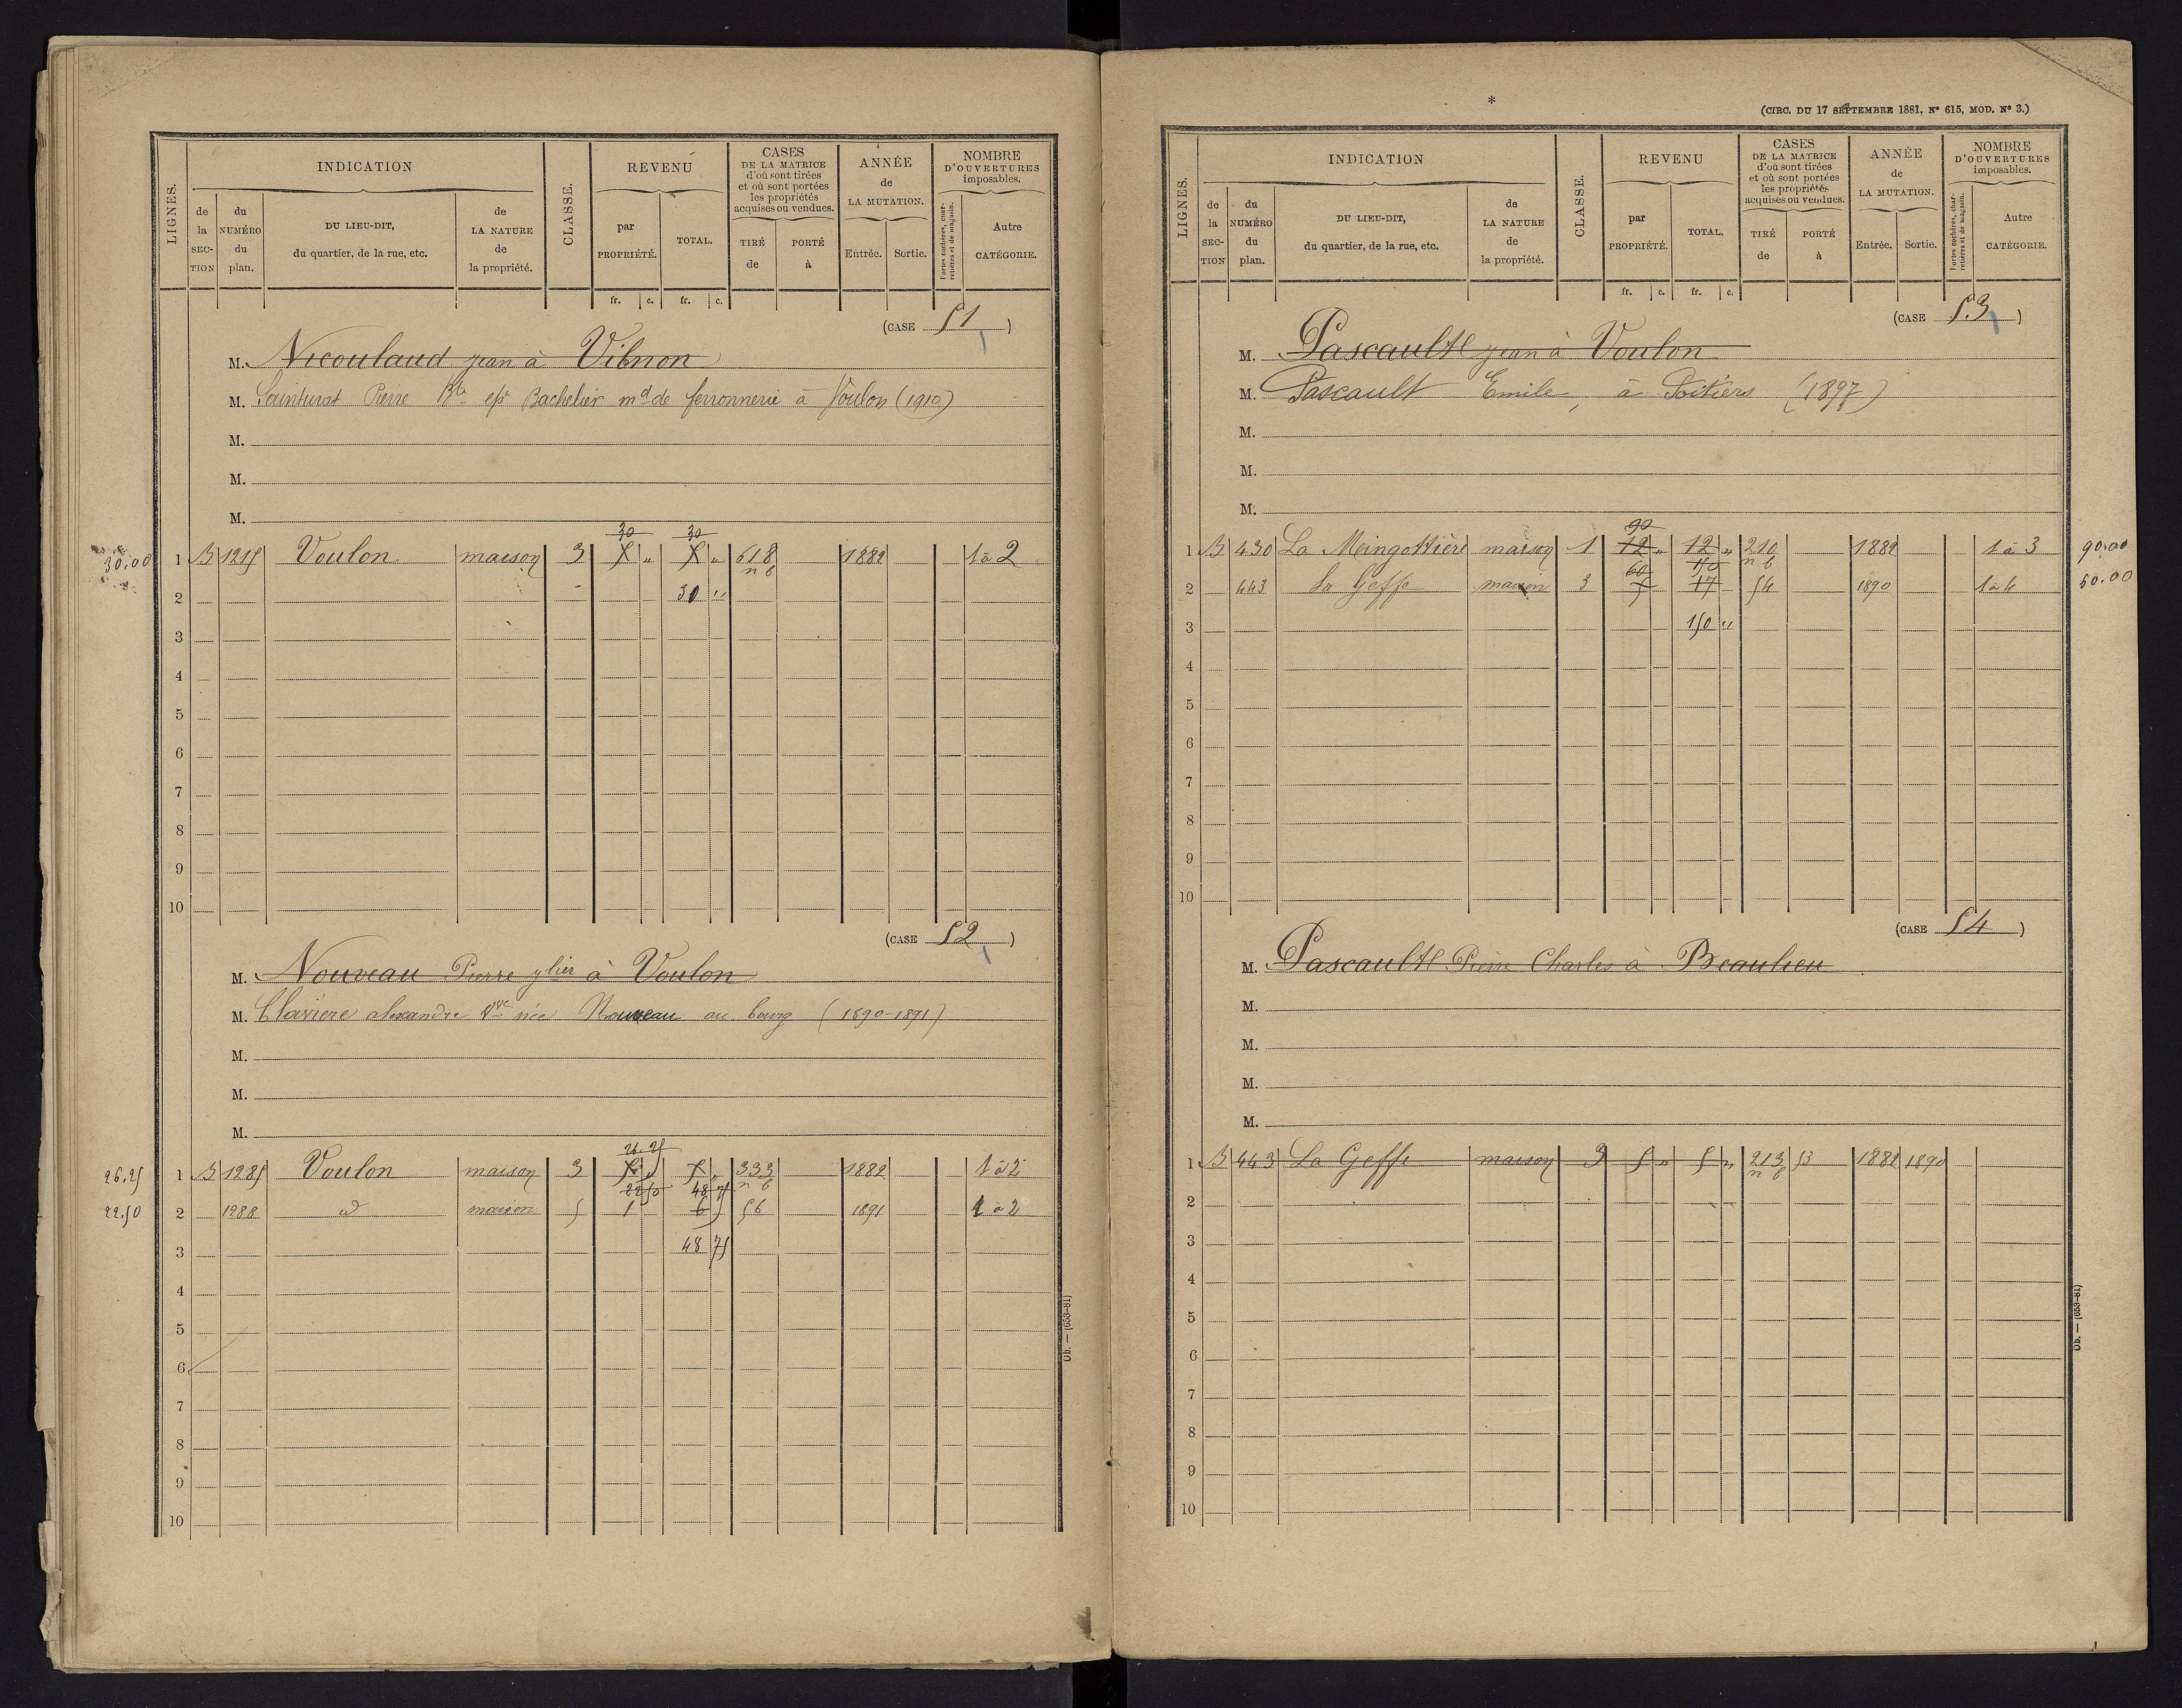 LIGNES.
INDICATION
de la SECTION
du NUMÉRO du plan.
DU LIEU-DIT, du quartier, de la rue, etc.
de LA NATURE de la propriété.
CLASSE.
REVENU
par PROPRIÉTÉ.
TOTAL.
CASES DE LA MATRICE d'où sont tirées et où sont portées les propriétés acquises ou vendues.
TIRÉ de
PORTÉ à
ANNÉE de LA MUTATION.
Entrée. Sortie.
NOMBRE D'OUVERTURES imposables.
Portes cochères, charretières et de magasin.
Autre CATÉGORIE.
fr. c. fr. c.
(CASE 51)
M. Nicoulaud jean à Vibnon
M. Pierre Bachelier md de ferronnerie à Voulon (1910)
M.
M.
M.
30 30
30.00 1 B 1215 Voulon maison 3 5 „ 5 „ 618 1882 1 à 2
n 6
2 30 „
3
4
5
6
7
8
9
10
(CASE 52)
M. Nouveau Pierre à Voulon
M. Clavière alexandre Vve née Nouveau au bourg (1890-1891)
M.
M.
M.
26.25
26.25 1 B 1285 Voulon maison 3 5 „ 333 1882 1 à 2
2250 48 75 n 6
22.50 2 1288 id maison 5 1 6 56 1891 1 à 2
3 48 75
4
5
6
7
8
9
10
Ob. — (653-81)
*
(CIRC. DU 17 SEPTEMBRE 1881, N° 615, MOD. N° 3.)
LIGNES.
INDICATION
de la SECTION
du NUMÉRO du plan.
DU LIEU-DIT, du quartier, de la rue, etc.
de LA NATURE de la propriété.
CLASSE.
REVENU
par PROPRIÉTÉ.
TOTAL.
CASES DE LA MATRICE d'où sont tirées et où sont portées les propriétés acquises ou vendues.
TIRÉ de
PORTÉ à
ANNÉE de LA MUTATION.
Entrée. Sortie.
NOMBRE D'OUVERTURES imposables.
Portes cochères, charretières et de magasin.
Autre CATÉGORIE.
fr. c. fr. c.
(CASE 53)
M. Pascault jean à Voulon
M. Pascault Emile, à Poitiers (1897)
M.
M.
M.
90
1 B 430 La Meingottière maison 1 12 „ 12 „ 210 1882 1 à 3 90.00
60 150 n 6
2 443 La Geffe maison 3 5 17 54 1890 1 à 4 60.00
3 150 „
4
5
6
7
8
9
10
(CASE 54)
M. Pascault Pierre Charles à Beaulieu
M.
M.
M.
M.
1 B 443 La Geffe maison 3 5 „ 5 „ 213 53 1882 1890
n 6
2
3
4
5
6
7
8
9
10
Ob. — (653-81)